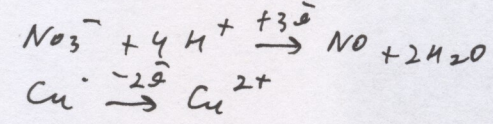 NO₃⁻ + 4H⁺ +3ē → NO + 2H₂O
Cu⁰ −2ē → Cu²⁺